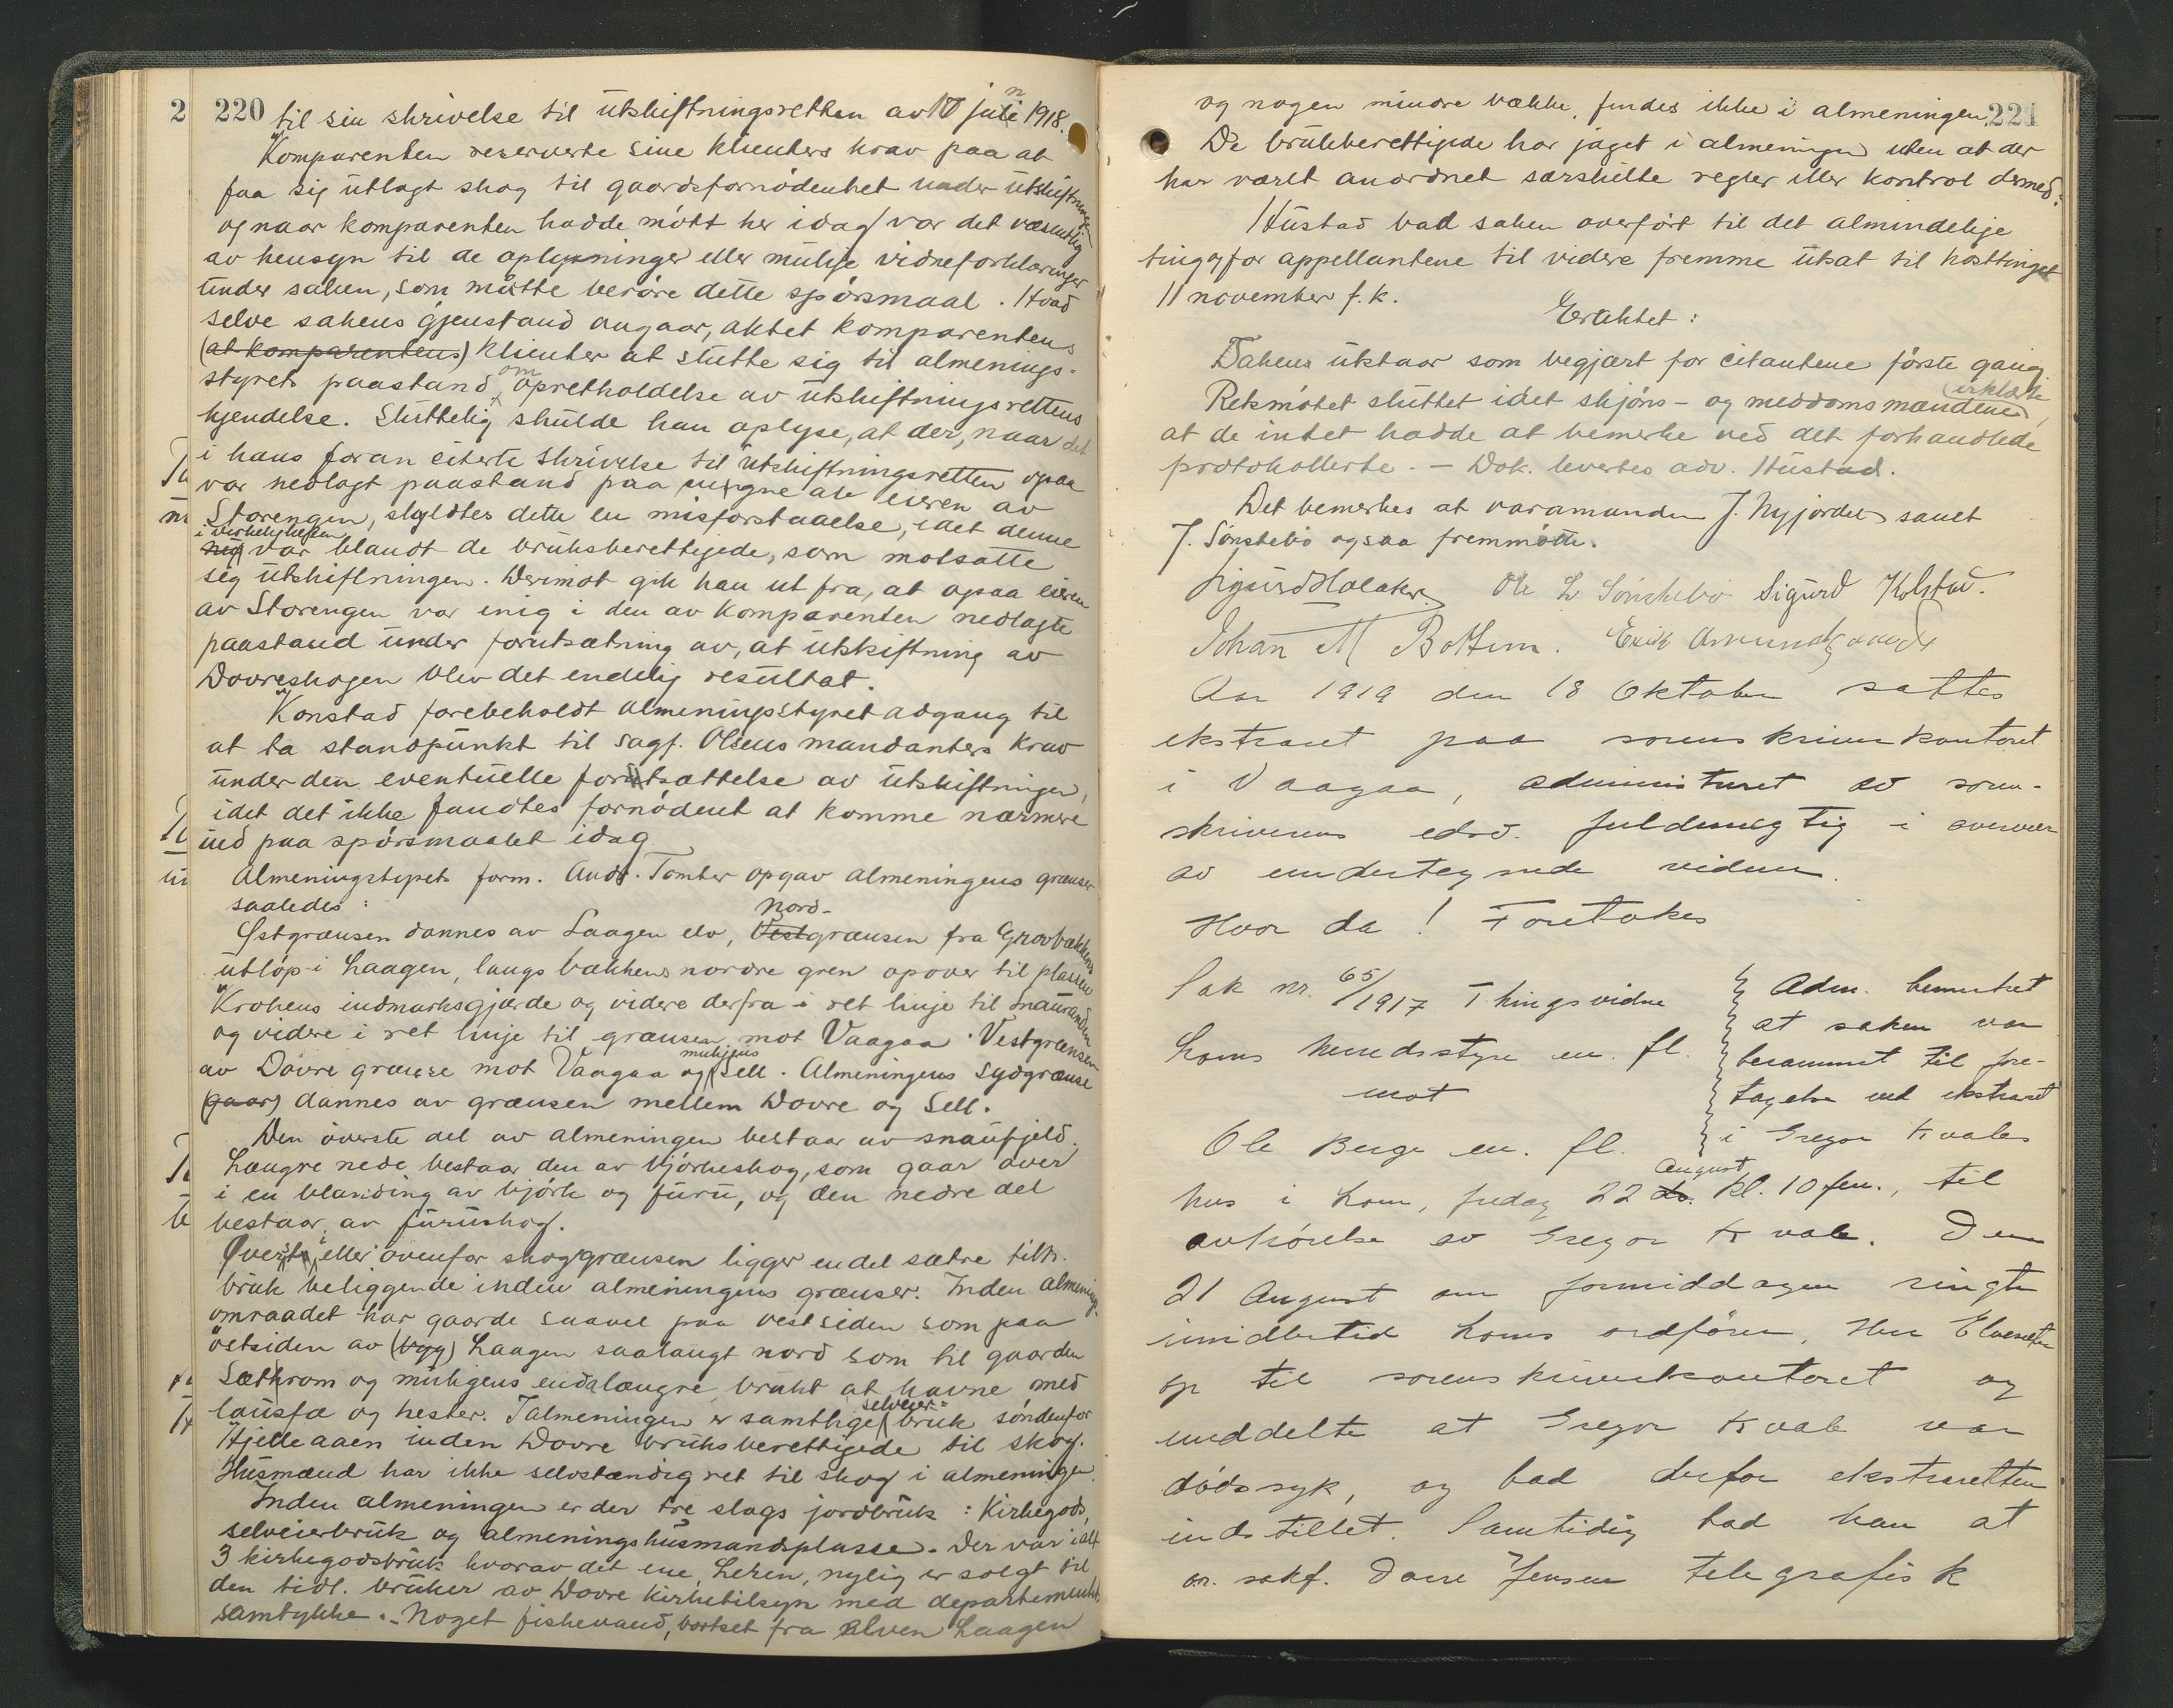 220
til sin skrivelse til utskiftningsretten av 10 juni 1918.
Komparenten reserverte sine klienters krav paa at
faa sig utlagt skog til gaardsfornødenhet under utskiftningen
og naar komparenten hadde møtt her idag var det væsentlig
av hensyn til de oplysninger eller mulige vidneforklaringer
under saken, som måtte berøre dette spørsmaal. Hvad
selve sakens gjenstand angaar, aktet komparentens
(at komparentens) klienter at støtte sig til almenings-
styrets paastand om opretholdelse av utskiftningsrettens
kjendelse. Sluttelig skulde han oplyse, at der, naar det
i hans foran citerte skrivelse til utskiftningsretten ogsaa
var nedlagt paastand paa vegne av eieren av
Storengen, skyldtes dette en misforstaaelse, idet denne
i virkeligheten var blandt de bruksberettigede, som motsatte
sig utskiftningen. Derimot gik han ut fra, at ogsaa eieren
av Storengen var enig i den av komparenten nedlagte
paastand under forutsætning av, at utskiftning av
Dovreskogen blev det endelig resultat.
Konstad forebeholdt almeningsstyret adgang til
at ta standpunkt til sagf. Olsens mandanters krav
under den eventuelle fortsættelse av utskiftningen,
idet det ikke fandtes fornødent at komme nærmere
ind paa spørsmaalet idag.
Almeningstyrets form. Andr. Tomter opgav almeningens grænser
saaledes:
Østgrænsen dannes av Laagen elv, Nord-
Vestgrænsen fra Grovbækkens
utløp i Laagen, langs bækkens nordre gren opover til plassen
Krokens indmarksgjærde og videre derfra i ret linje til
og videre i ret linje til grænsen mot Vaagaa. Vestgrænsen
av Dovre grænse mot Vaagaa og muligens Sell. Almeningens sydgrænse
(gaar) dannes av grænsen mellem Dovre og Sell.
Den øverste del av almeningen bestaar av snaufjeld.
Længre nede bestaar den av bjørkeskog, som gaar over
i en blanding av bjørk og furu, og den nedre del
bestaar av furuskog.
Øverst eller ovenfor skoggrænsen ligger endel sætre tilh.
bruk beliggende inden almeningens grænser. Inden almenings-
omraadet har gaarde saavel paa vestsiden som paa
østsiden av (byg) Laagen saalangt nord som til gaarden
og muligens endda længre brukt at havne med
lausfæ og hester. I almeningen er samtlige selveier-bruk søndenfor
Hjelleaaen inden Dovre bruksberettigede til skog.
Husmænd har ikke selvstændig ret til skog i almeningen.
Inden almeningen er der tre slags jordbruk: Kirkegods,
selveierbruk og almeningshusmandsplasse. Der var ialt
3 kirkegodsbruk hvorav det ene, Lehen, nylig er solgt til
den tidl. bruker av Dovre kirketilsyn med departementets
samtykke. - Noget fiskevand, bortset fra elven Laagen
221
og nogen mindre bække, findes ikke i almeningen.
De brukberettigede har jaget i almeningen uten at der
har vært anordnet særskilte regler eller kontrol dermed.
Hustad bad saken overført til det almindelige
ting og for appellantene til videre fremme utsat til høsttinget
11 november f. k.
Eragtet:
Saken utstaar som begjært for citantene første gang.
Retsmøtet sluttet idet skjøns- og meddomsmændene erklærte
at de intet hadde at bemerke ved det forhandlede
protokollerte. - Dok. levertes adv. Hustad.
Det bemerkes at varamanden J. Nyjordet samt
J. Sønstebø ogsaa fremmøtte.
Sigurd Ole L Sønstebø Sigurd Kolstad.
Johan M Bottem. Erik Amundsgaard
Aar 1919 den 18 Oktober sattes
ekstraret paa sorenskriverkontoret
i Vaagaa, administreret av soren-
skriverens edsv. fuldmægtig i overvær
av undertegnede vidner.
Hvor da! Foretokes
Sak nr. 65/1917 Thingsvidne
Loms herredsstyre en. fl.
mot
Ole Berge en. fl.
Adm. bemerket
at saken var
berammet til fore-
tagelse ved ekstraret
i Gregor Kvales
hus i Lom, fredag 22 ds. August kl. 10 fm., til
avhørelse av Gregor Kvale. Den
21 August om formiddagen ringte
imidlertid Loms ordfører, Herr Elveseter
op til sorenskriverkontoret og
meddelte at Gregor Kvale var
dødssyk, og bad derfor ekstraretten
indstillet. Samtidig bad han at
o.r. sakf. Dorre Jensen telegrafisk